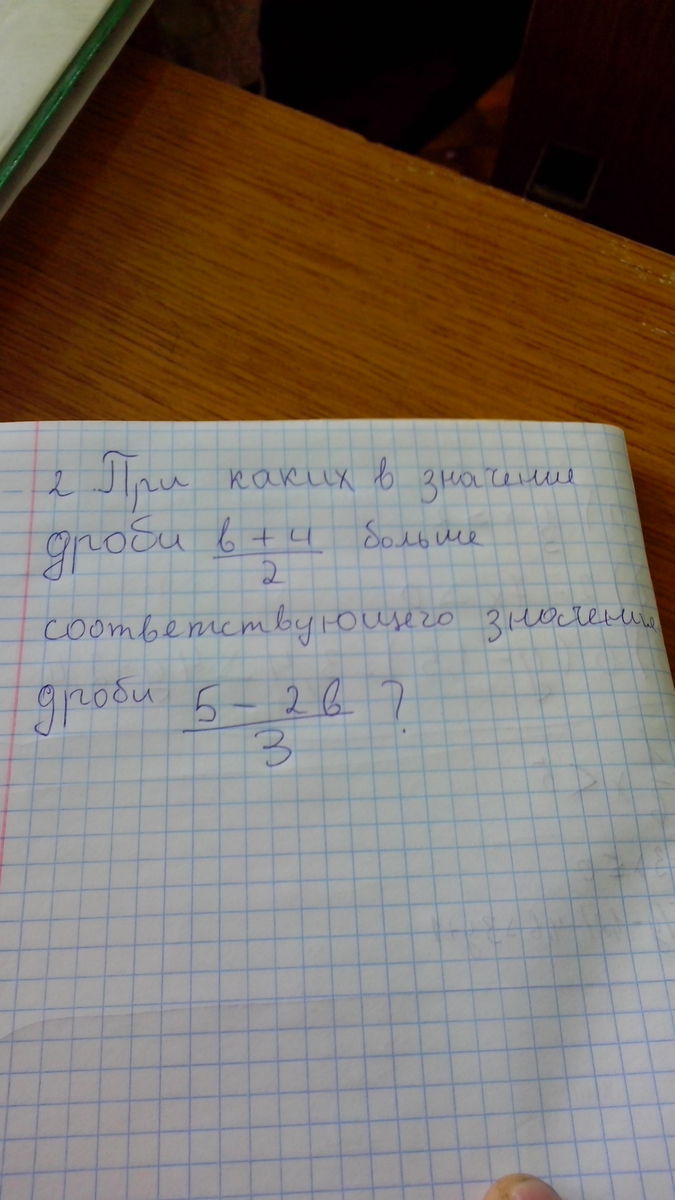 2 При каких в значение
дроби в + 4 / 2 больше
соответствующего значение
дроби 5 - 2в / 3 ?